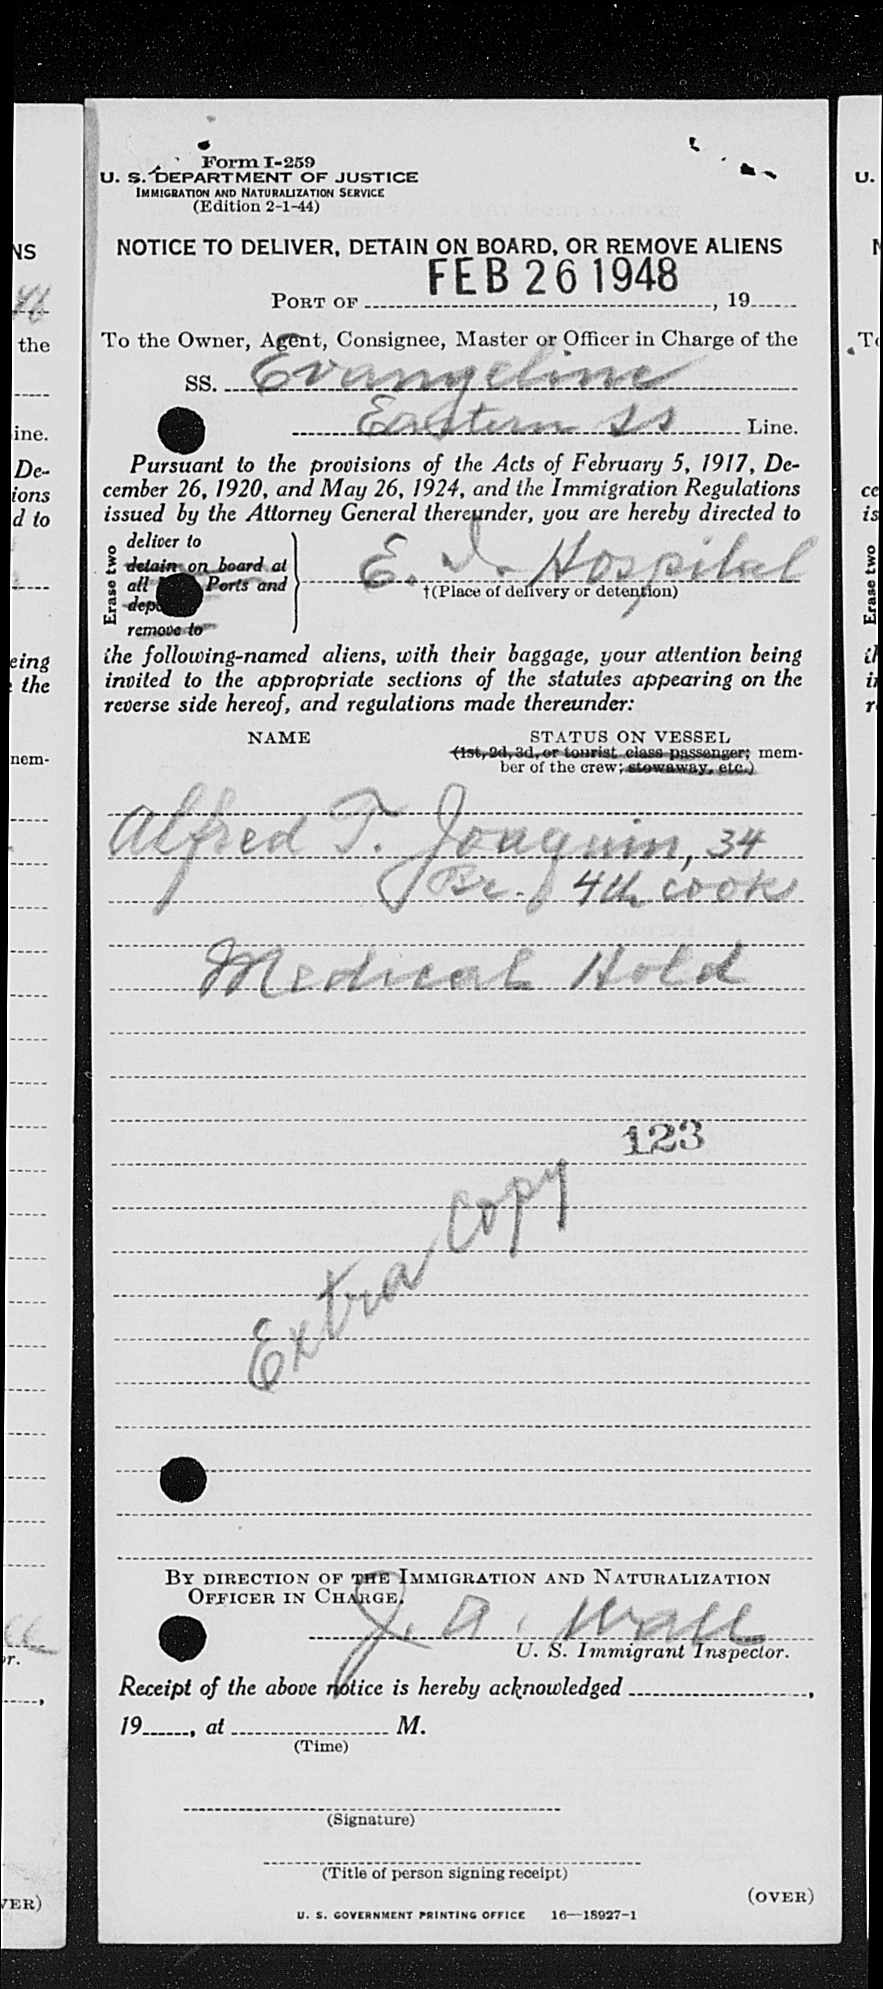 Form I-259
U. S. DEPARTMENT OF JUSTICE
IMMIGRATION AND NATURALIZATION SERVICE
(Edition 2-1-44)
NOTICE TO DELIVER, DETAIN ON BOARD, OR REMOVE ALIENS
FEB 26 1948
PORT OF , 19
To the Owner, Agent, Consignee, Master or Officer in Charge of the
SS. Evangeline
Eastern SS Line.
Pursuant to the provisions of the Acts of February 5, 1917, De-
cember 26, 1920, and May 26, 1924, and the Immigration Regulations
issued by the Attorney General thereunder, you are hereby directed to
Erase two
deliver to
detain on board at
all Ports and
remove to
E. I. Hospital
†(Place of delivery or detention)
the following-named aliens, with their baggage, your attention being
invited to the appropriate sections of the statutes appearing on the
reverse side hereof, and regulations made thereunder:
NAME STATUS ON VESSEL
(1st, 2d, 3d, or tourist class passenger; mem-
ber of the crew; stowaway, etc.)
Alfred T. Joaquin, 34
Br. 4th cook
Medical Hold
123
Extra Copy
BY DIRECTION OF THE IMMIGRATION AND NATURALIZATION
OFFICER IN CHARGE.
J. A. Wall
U. S. Immigrant Inspector.
Receipt of the above notice is hereby acknowledged ,
19 , at M.
(Time)
(Signature)
(Title of person signing receipt)
(OVER)
U. S. GOVERNMENT PRINTING OFFICE 16—18927-1